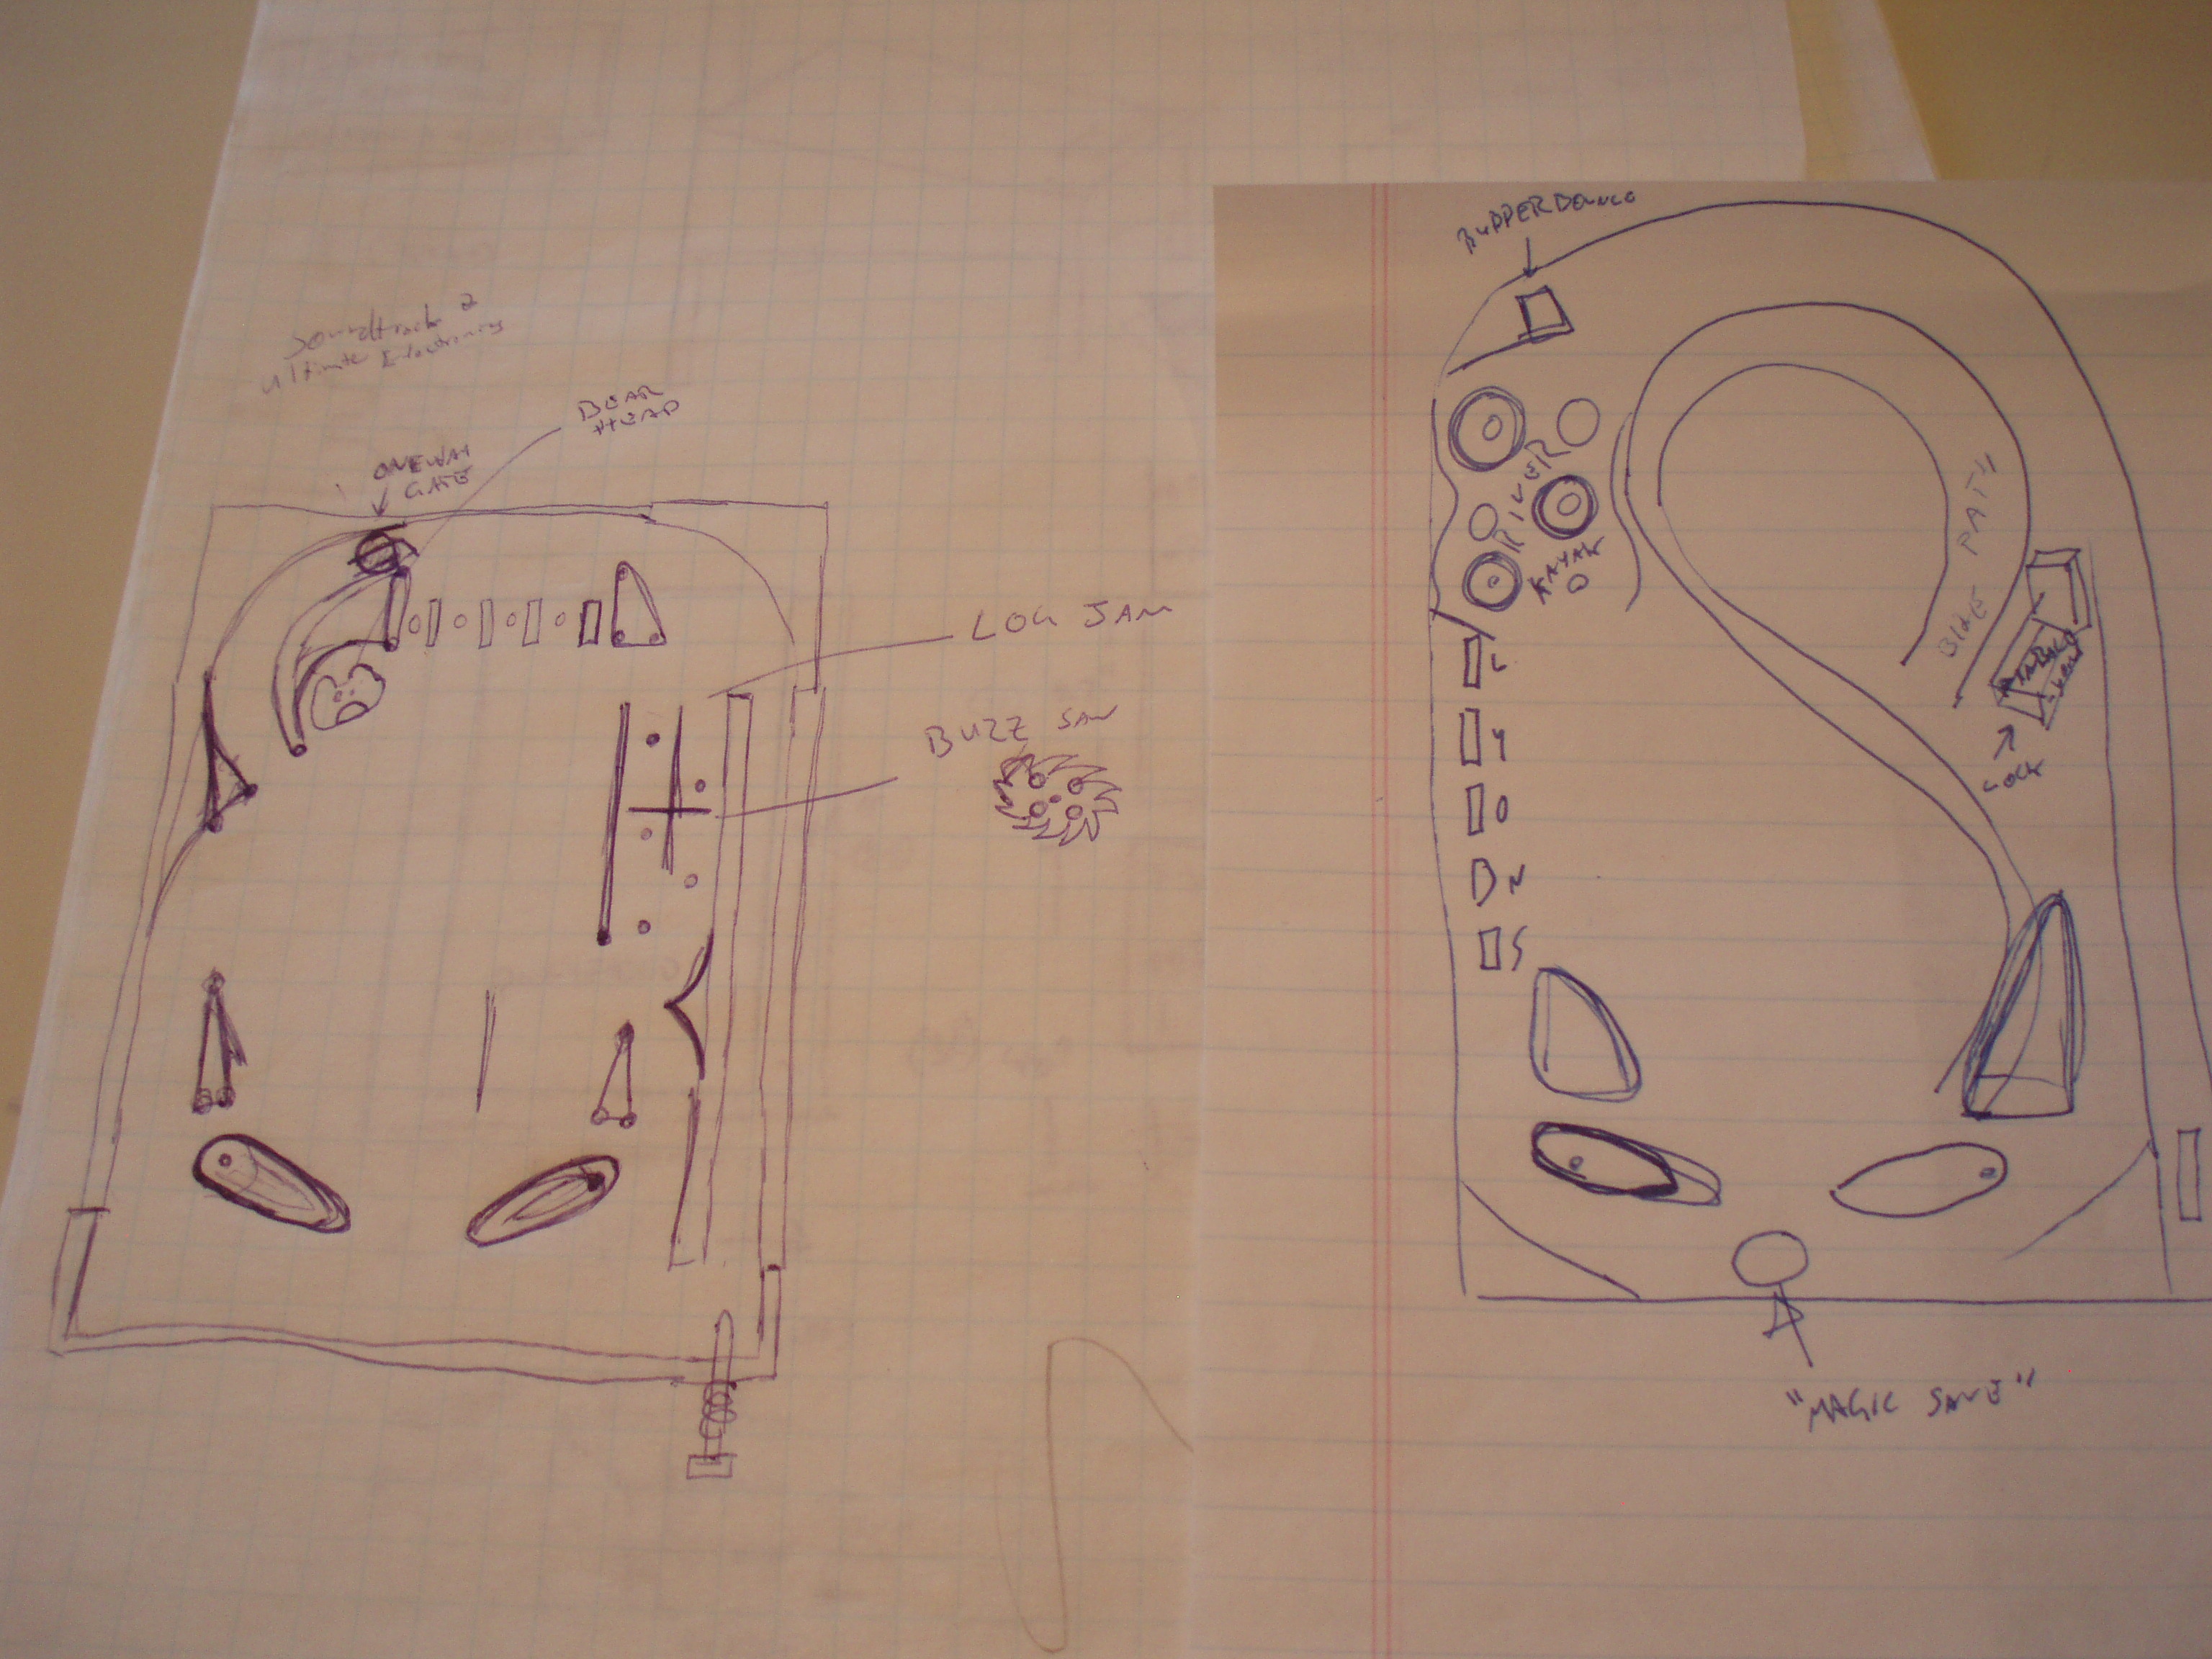 Soundtrack 2
Ultimate Electronics
BEAR
HEAD
ONEWAY
GATE
LOG JAM
BUZZ SAW
RIVER
KAYAK
BIKE PATH
LOCK
L
Y
O
N
S
"MAGIC SAVE"